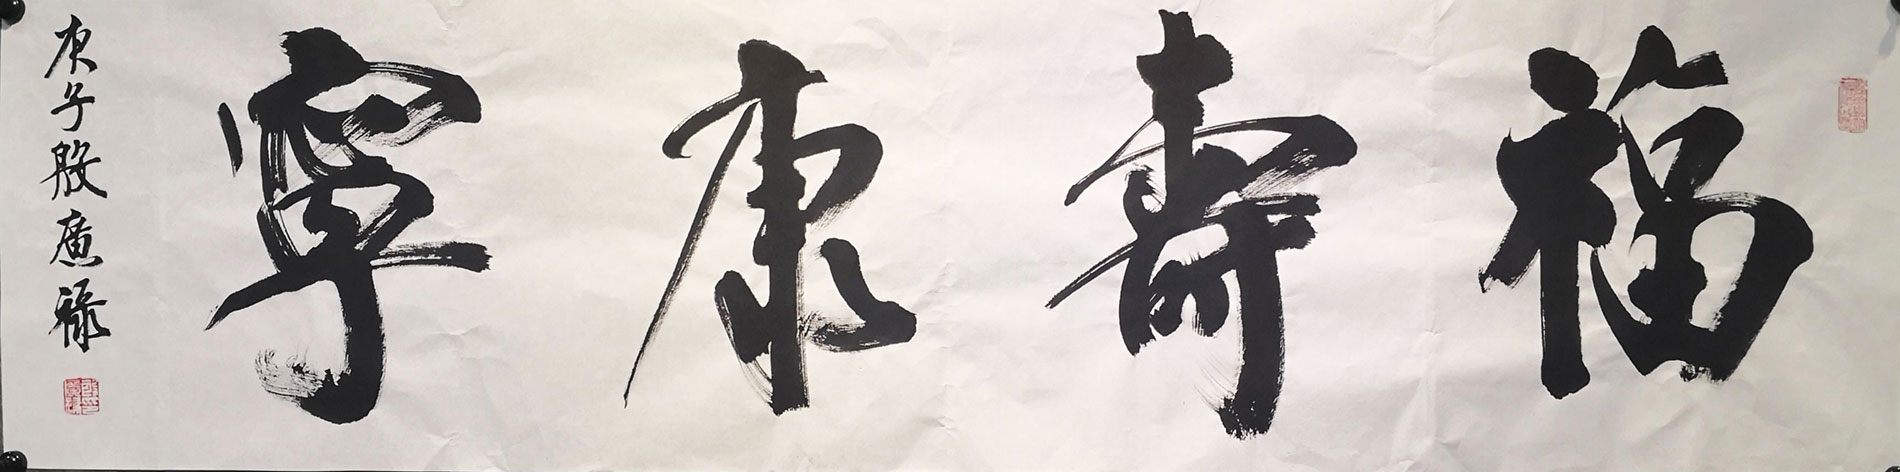 福壽康寧
庚子殷廣祿